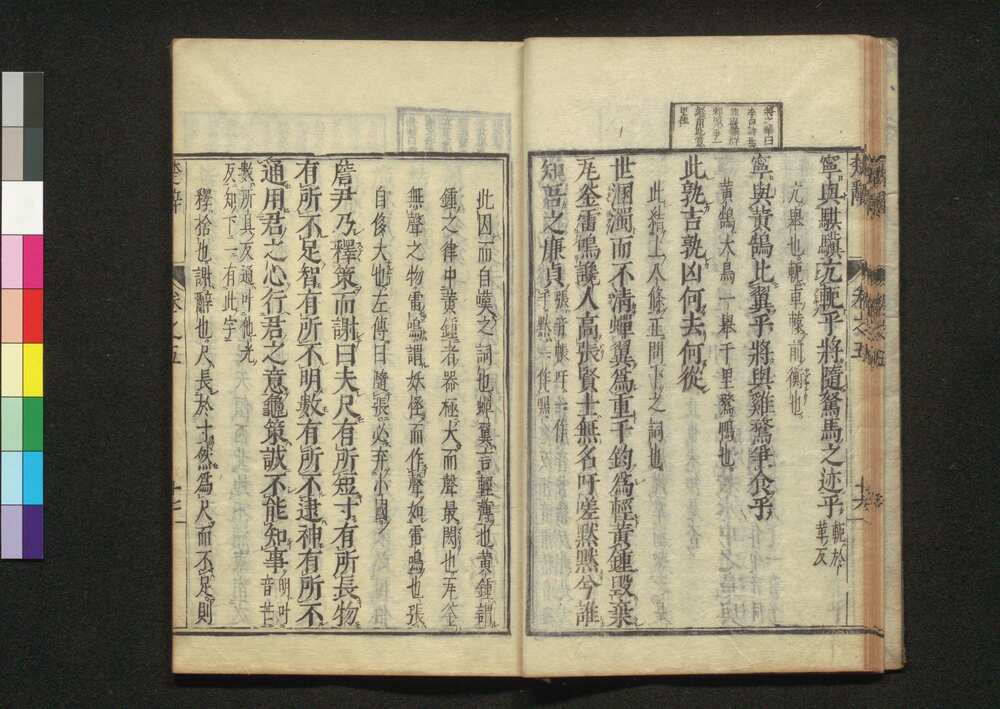 楚辭
卷之五
十六
寧與騏驥亢軛乎將隨駑馬之迹乎軛於革反
亢舉也軛車轅前衡也
寧與黃鵠比翼乎將與雞鶩爭食乎
黃鵠大鳥一舉千里鶩鴨也
此孰吉孰凶何去何從
此結上八條正問卜之詞也
世溷濁而不清蟬翼爲重千鈞爲輕黃鍾毀棄
瓦釜雷鳴讒人高張賢士無名吁嗟默默兮誰
知吾之廉貞張音帳吁一作于默一作嘿
此因而自嘆之詞也蟬翼言輕薄也黃鍾謂
鍾之律中黃鍾者器極大而聲最閎也瓦釜
無聲之物雷鳴謂妖怪而作聲如雷鳴也張
自侈大也左傳曰隨張必弃小國
詹尹乃釋策而謝曰夫尺有所短寸有所長物
有所不足智有所不明數有所不逮神有所不
通用君之心行君之意龜策誠不能知事明叶音芒
數所具反通叶他光
反知下一有此字
釋捨也謝辭也尺長於寸然爲尺而不足則
楚辭
卷之五
十七